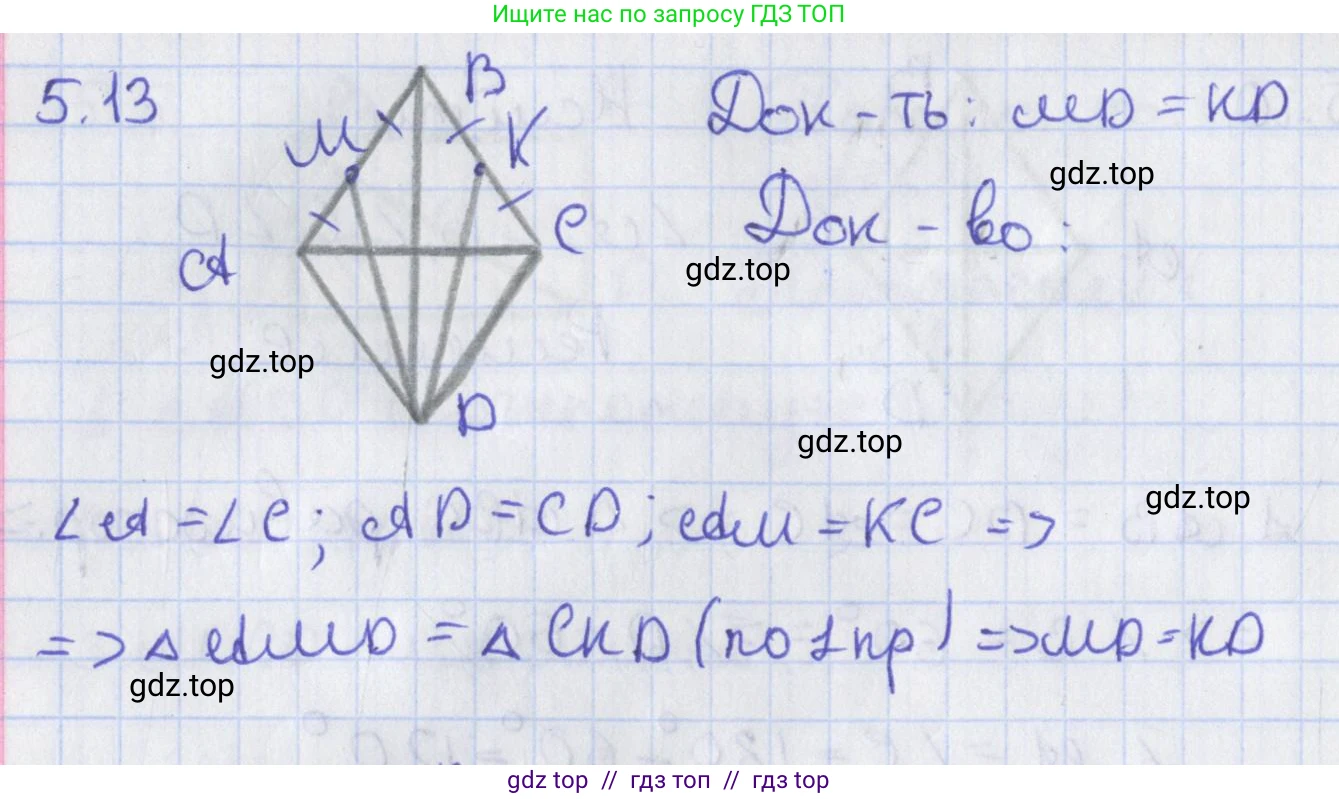 Ищите нас по запросу ГДЗ ТОП
5.13
B
Док-ть: MD = KD
M
K
gdz.top
Док-во:
C
A
gdz.top
gdz.top
D
gdz.top
∠A = ∠C; AD = CD; AM = KC =>
gdz.top
=> △ AMD = △ CKD (по 1 пр) => MD = KD
gdz.top
gdz top // гдз топ // гдз top